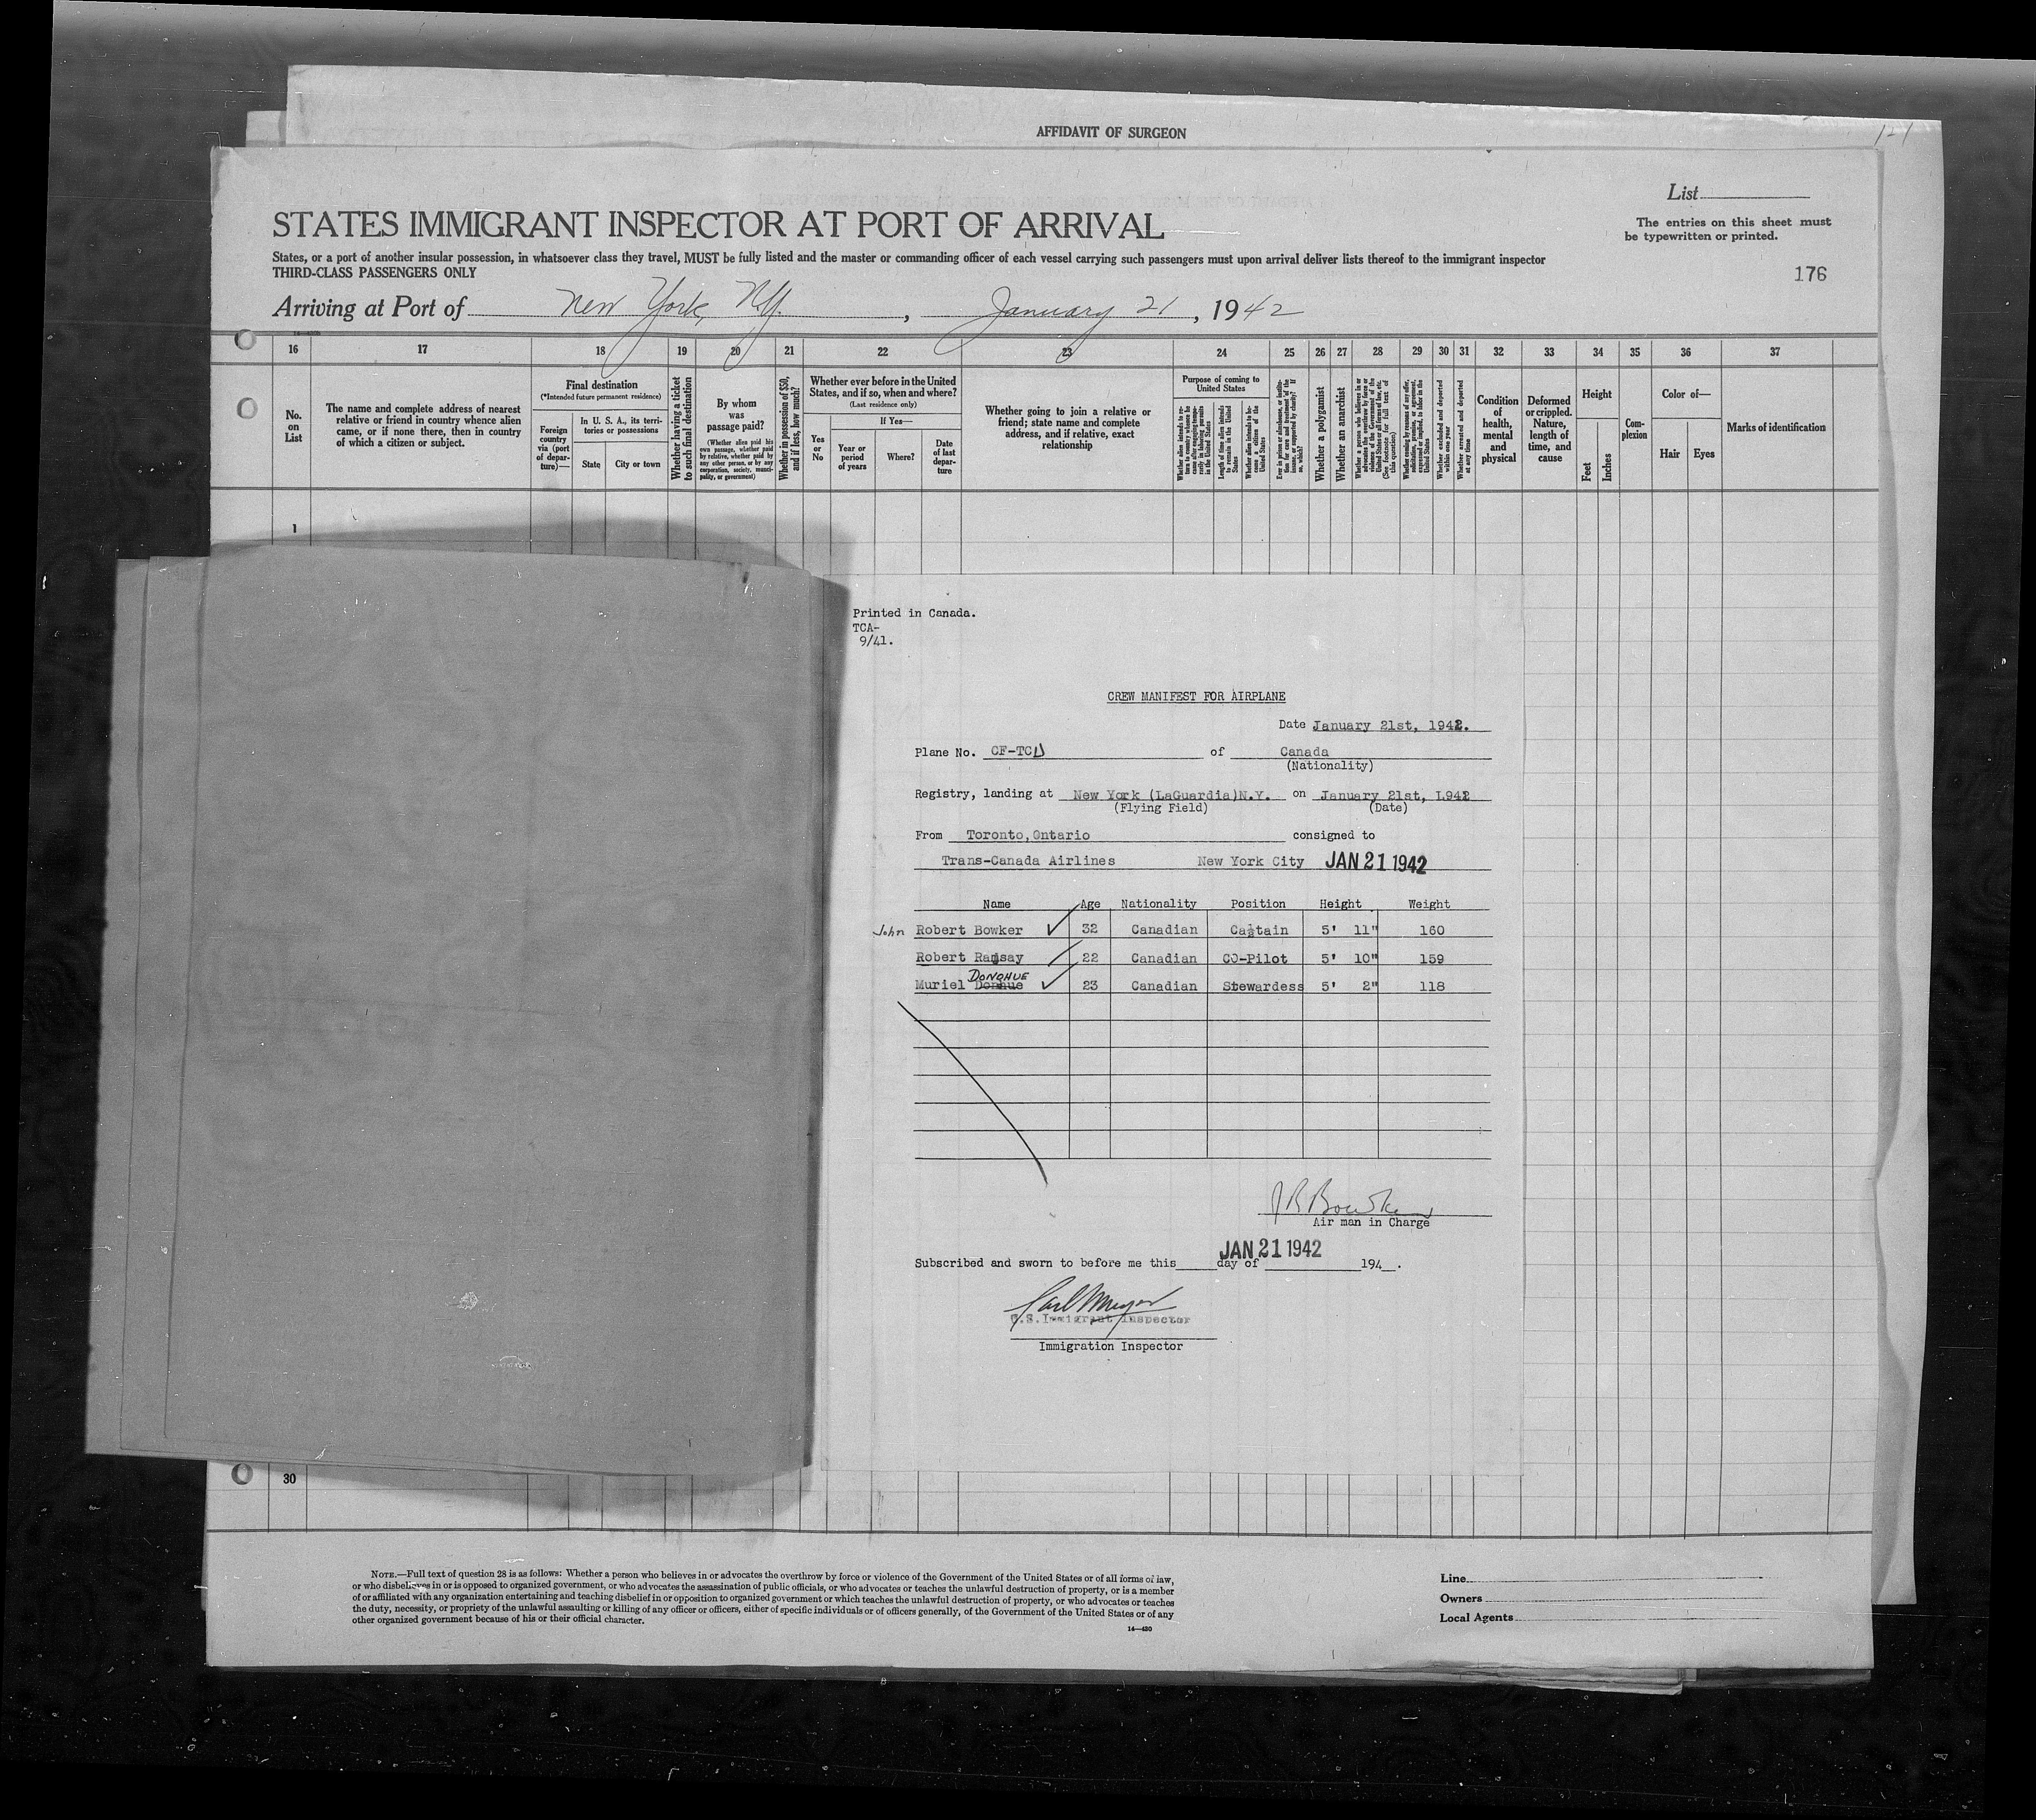 AFFIDAVIT OF SURGEON
121
List
STATES IMMIGRANT INSPECTOR AT PORT OF ARRIVAL
The entries on this sheet must
be typewritten or printed.
States, or a port of another insular possession, in whatsoever class they travel, MUST be fully listed and the master or commanding officer of each vessel carrying such passengers must upon arrival deliver lists thereof to the immigrant inspector
THIRD-CLASS PASSENGERS ONLY
176
Arriving at Port of New York, N.Y., January 21, 1942
16 17 18 19 20 21 22 23 24 25 26 27 28 29 30 31 32 33 34 35 36 37
No.
on
List
The name and complete address of nearest
relative or friend in country whence alien
came, or if none there, then in country
of which a citizen or subject.
Final destination
(*Intended future permanent residence)
Foreign
country
via (port
of depar-
ture)—
In U. S. A., its terri-
tories or possessions
State
City or town
Whether having a ticket
to such final destination
By whom
was
passage paid?
(Whether alien paid his
own passage, whether paid
by relative, whether paid by
any other person, or by any
corporation, society, munici-
pality, or government)
Whether in possession of $50,
and if less, how much?
Whether ever before in the United
States, and if so, when and where?
(Last residence only)
Yes
or
No
If Yes—
Year or
period
of years
Where?
Date
of last
depar-
ture
Whether going to join a relative or
friend; state name and complete
address, and if relative, exact
relationship
Purpose of coming to
United States
Length of time alien intends
to remain in the United
States
Whether alien intends to be-
come a citizen of the
United States
Whether a polygamist
Whether an anarchist
Whether excluded and deported
within one year
Whether arrested and deported
at any time
Condition
of
health,
mental
and
physical
Deformed
or crippled.
Nature,
length of
time, and
cause
Height
Feet
Inches
Com-
plexion
Color of—
Hair
Eyes
Marks of identification
1
Printed in Canada.
TCA-
9/41.
CREW MANIFEST FOR AIRPLANE
Date January 21st, 1942.
Plane No. CF-TCD of Canada
(Nationality)
Registry, landing at New York (LaGuardia)N.Y. on January 21st, 1942
(Flying Field) (Date)
From Toronto,Ontario consigned to
Trans-Canada Airlines New York City JAN 21 1942
Name Age Nationality Position Height Weight
John Robert Bowker 32 Canadian Captain 5' 11" 160
Robert Ramsay 22 Canadian CO-Pilot 5' 10" 159
DONOHUE
Muriel Donhue 23 Canadian Stewardess 5' 2" 118
J R Bowker
Air man in Charge
JAN 21 1942
Subscribed and sworn to before me this day of 194 .
Carl Meyer
U.S.Immigrant Inspector
Immigration Inspector
30
NOTE.—Full text of question 28 is as follows: Whether a person who believes in or advocates the overthrow by force or violence of the Government of the United States or of all forms of law,
or who disbelieves in or is opposed to organized government, or who advocates the assassination of public officials, or who advocates or teaches the unlawful destruction of property, or is a member
of or affiliated with any organization entertaining and teaching disbelief in or opposition to organized government or which teaches the unlawful destruction of property, or who advocates or teaches
the duty, necessity, or propriety of the unlawful assaulting or killing of any officer or officers, either of specific individuals or of officers generally, of the Government of the United States or of any
other organized government because of his or their official character.
14—430
Line
Owners
Local Agents